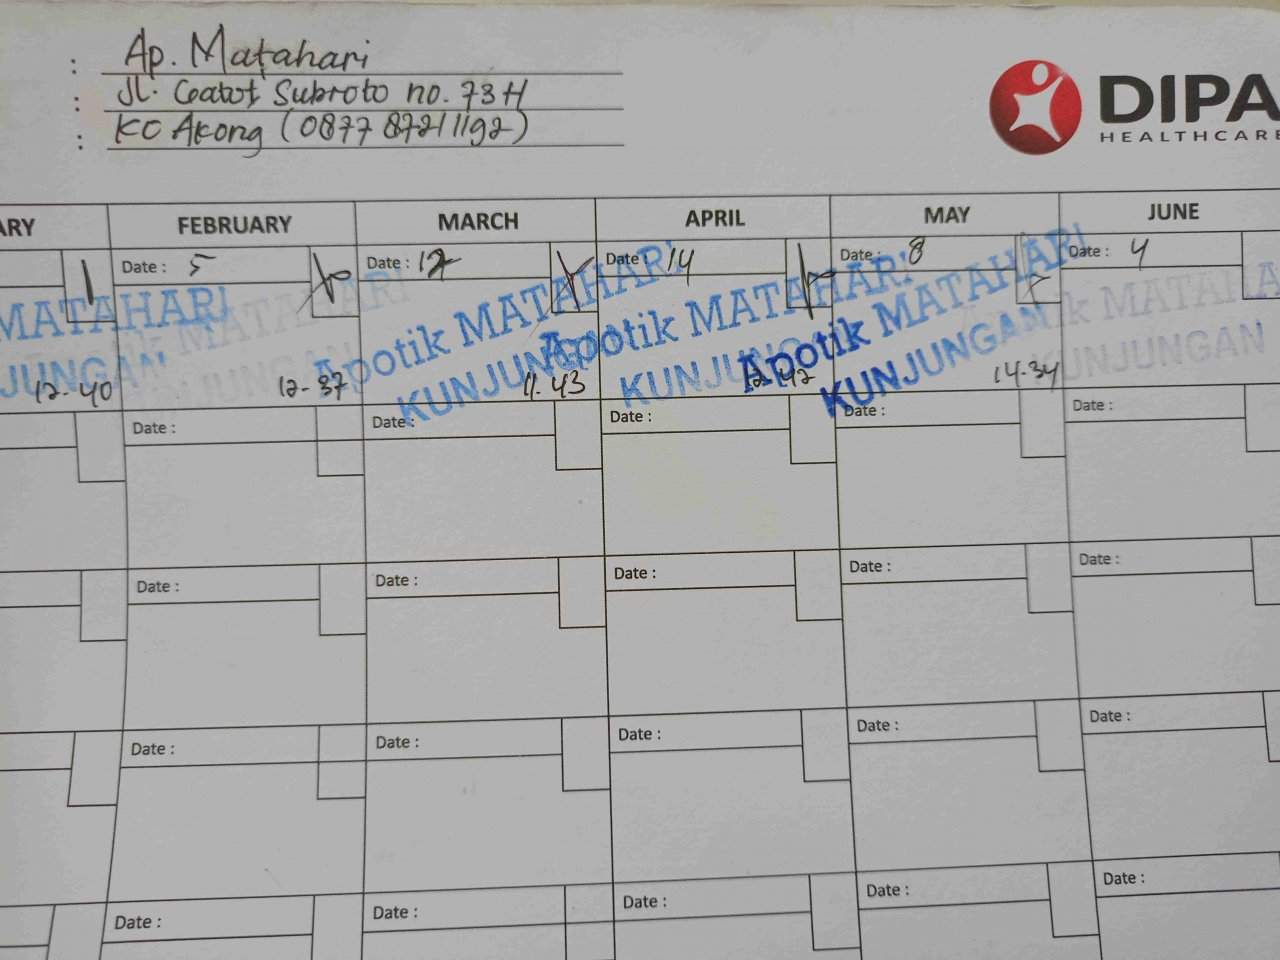 : Ap. Matahari
: Jl. Gatot Subroto no. 73H
: KO Akong (0877 87211192)
DIPA
HEALTHCARE
ARY FEBRUARY MARCH APRIL MAY JUNE
Date : 5 Date : 12 Date : 14 Date : 8 Date : 4
MATAHARI Apotik MATAHARI Apotik MATAHARI Apotik MATAHARI
JUNGAN KUNJUNGAN KUNJUNG KUNJUNGAN KUNJUNGAN
12-40 12-37 11.43 12-42 14.34
Date : Date : Date : Date : Date :
Date : Date : Date : Date : Date :
Date : Date : Date : Date : Date :
Date : Date : Date : Date : Date :